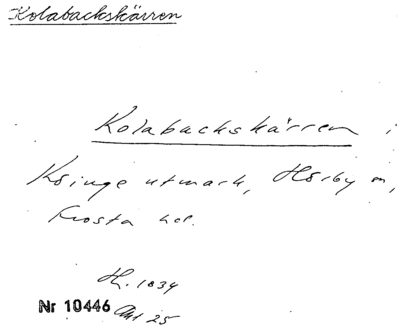 Kolabackskärren
Kolabackskärren i
Ksinge utmark, Hörby sn,
Frosta hd.
H. 1834
Nr 10446 Akt 25